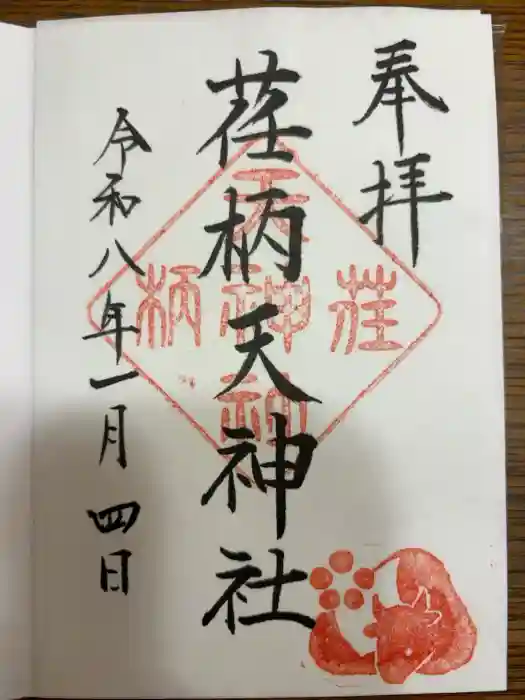 奉拝
荏柄天神社
令和八年一月四日
荏
柄
天
神
社